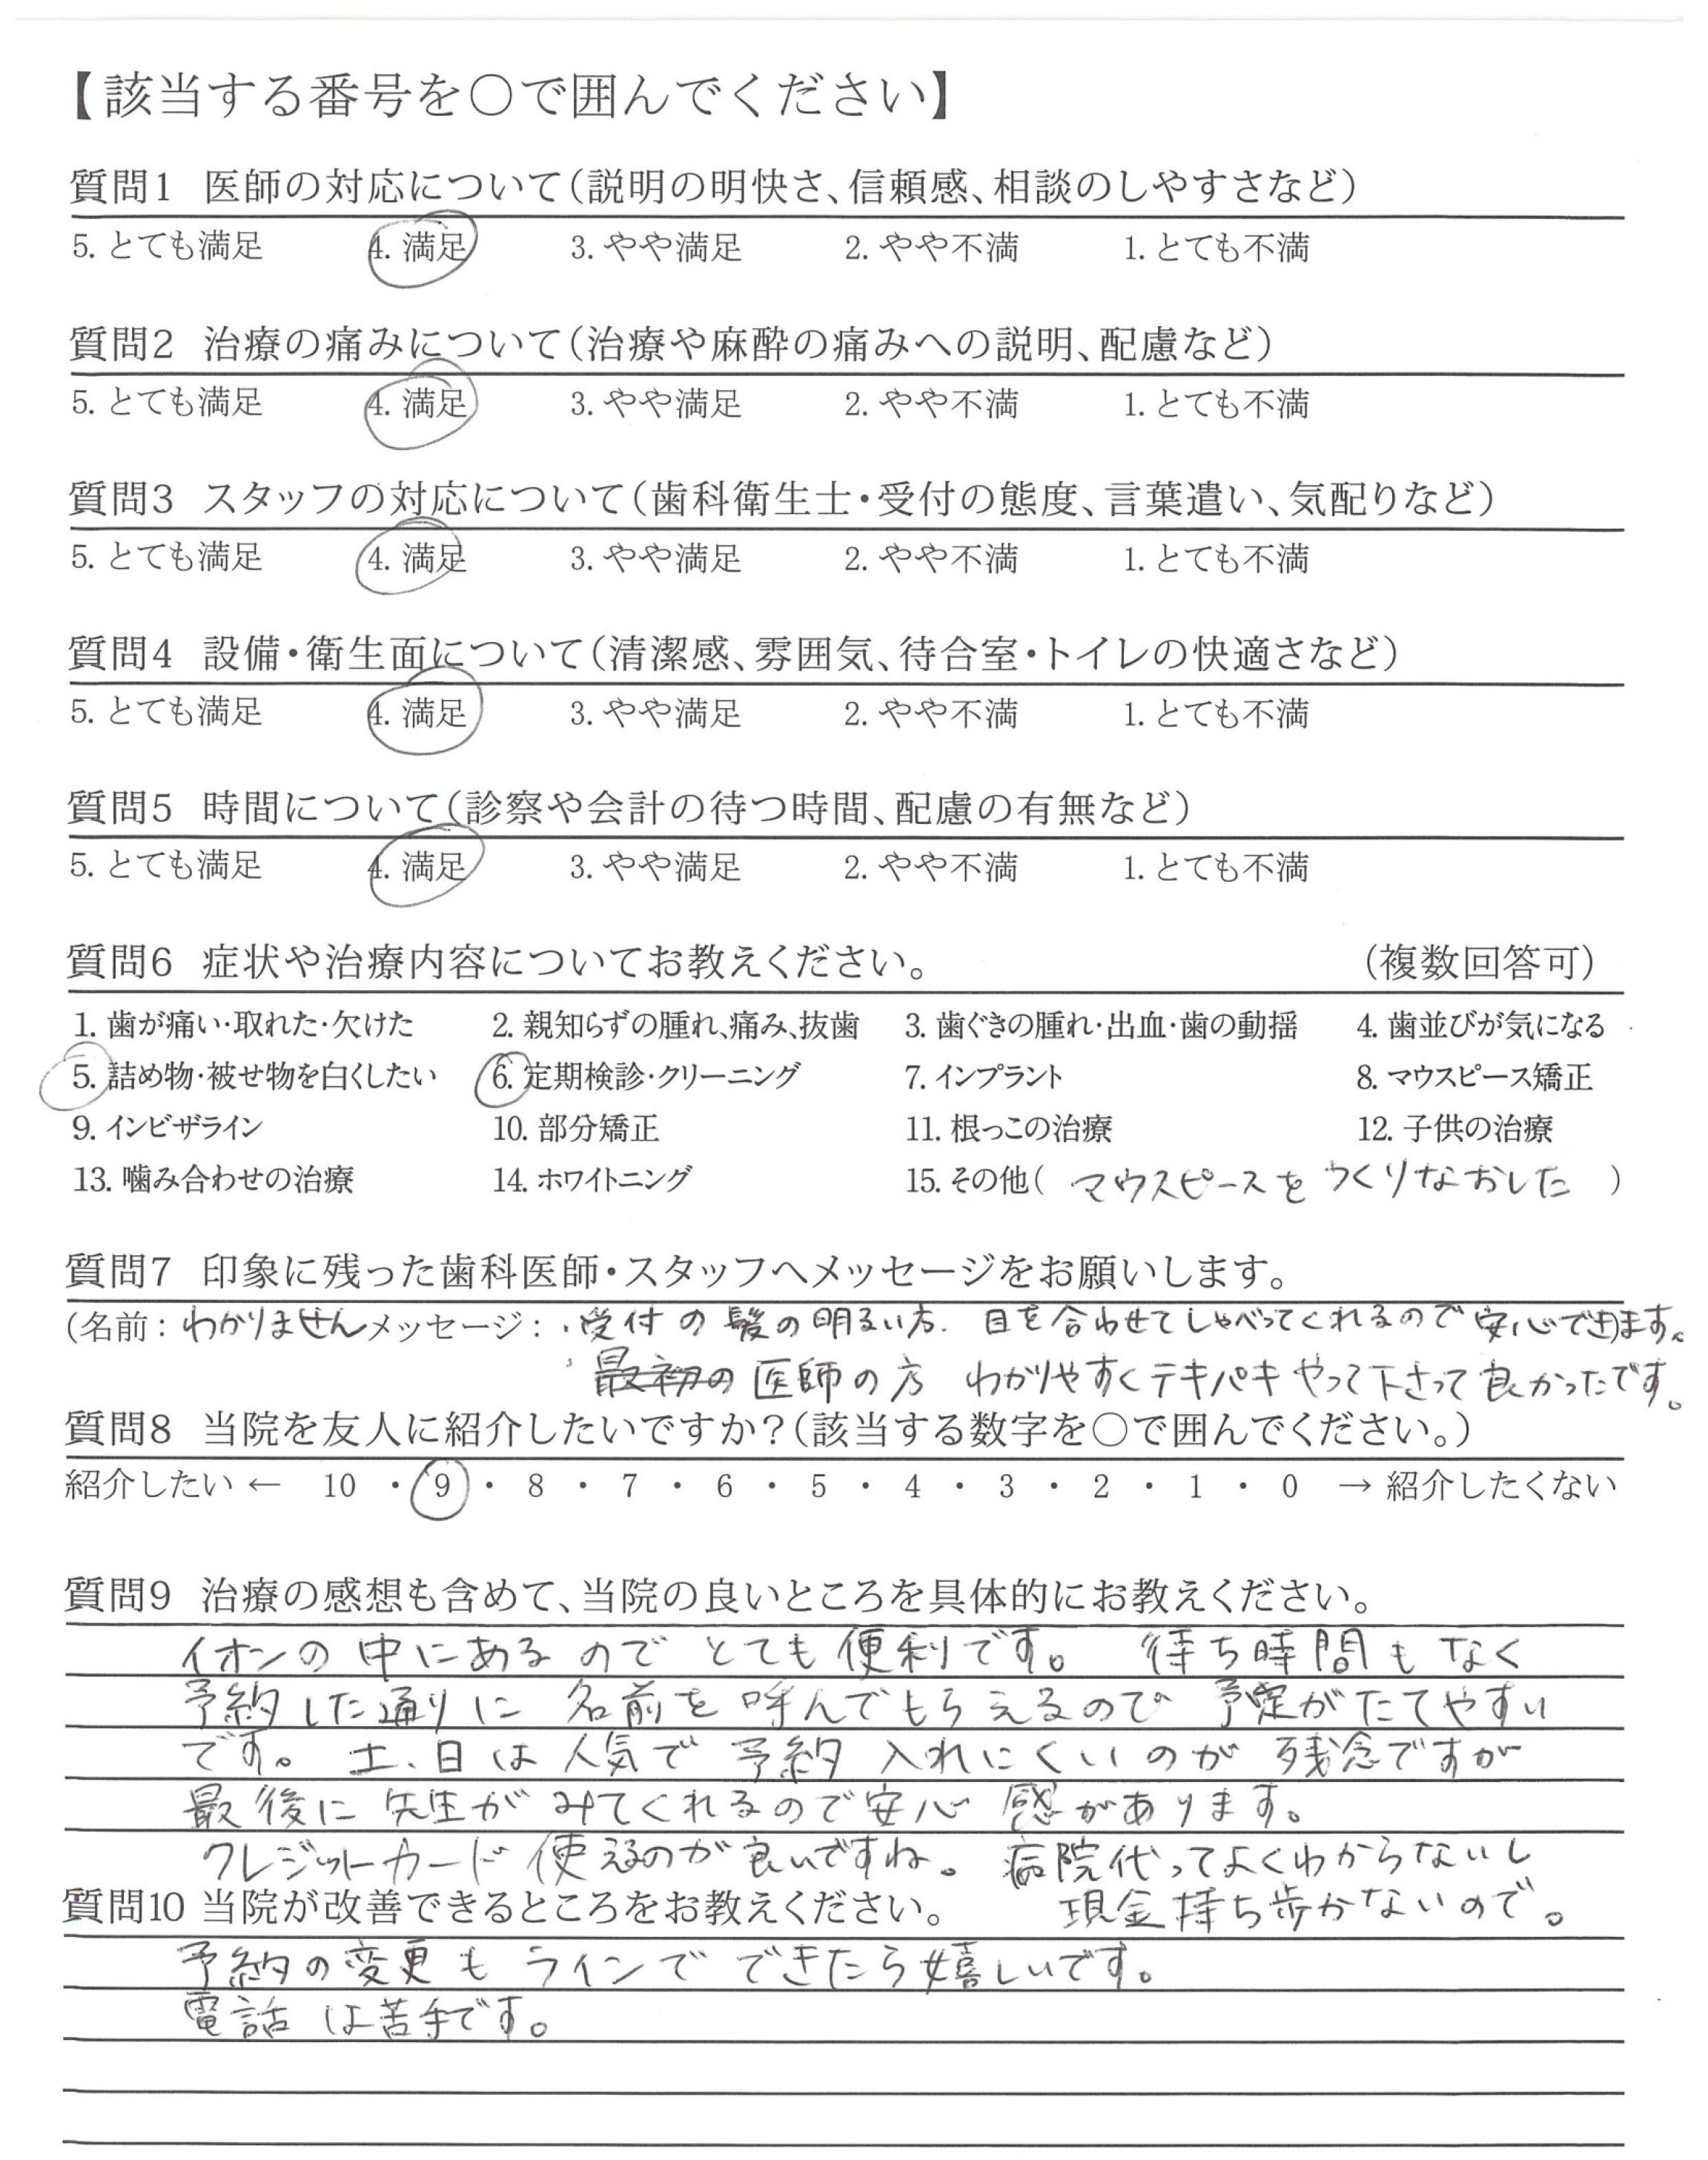 【該当する番号を○で囲んでください】
質問1 医師の対応について(説明の明快さ、信頼感、相談のしやすさなど)
5. とても満足 4. 満足 3. やや満足 2. やや不満 1. とても不満
質問2 治療の痛みについて(治療や麻酔の痛みへの説明、配慮など)
5. とても満足 4. 満足 3. やや満足 2. やや不満 1. とても不満
質問3 スタッフの対応について(歯科衛生士・受付の態度、言葉遣い、気配りなど)
5. とても満足 4. 満足 3. やや満足 2. やや不満 1. とても不満
質問4 設備・衛生面について(清潔感、雰囲気、待合室・トイレの快適さなど)
5. とても満足 4. 満足 3. やや満足 2. やや不満 1. とても不満
質問5 時間について(診察や会計の待つ時間、配慮の有無など)
5. とても満足 4. 満足 3. やや満足 2. やや不満 1. とても不満
質問6 症状や治療内容についてお教えください。 (複数回答可)
1. 歯が痛い・取れた・欠けた 2. 親知らずの腫れ、痛み、抜歯 3. 歯ぐきの腫れ・出血・歯の動揺 4. 歯並びが気になる
5. 詰め物・被せ物を白くしたい 6. 定期検診・クリーニング 7. インプラント 8. マウスピース矯正
9. インビザライン 10. 部分矯正 11. 根っこの治療 12. 子供の治療
13. 噛み合わせの治療 14. ホワイトニング 15. その他( マウスピースをつくりなおした )
質問7 印象に残った歯科医師・スタッフへメッセージをお願いします。
(名前: わかりません メッセージ: ・受付の髪の明るい方. 目を合わせてしゃべってくれるので安心できます。)
・最初の医師の方 わかりやすくテキパキやって下さって良かったです。
質問8 当院を友人に紹介したいですか?(該当する数字を○で囲んでください。)
紹介したい ← 10 ・ 9 ・ 8 ・ 7 ・ 6 ・ 5 ・ 4 ・ 3 ・ 2 ・ 1 ・ 0 → 紹介したくない
質問9 治療の感想も含めて、当院の良いところを具体的にお教えください。
イオンの中にあるのでとても便利です。 待ち時間もなく
予約した通りに 名前を呼んでもらえるので 予定がたてやすい
です。 土、日は人気で予約入れにくいのが残念ですが
最後に先生がみてくれるので安心感があります。
クレジットカード使えるのが良いですね。 病院代ってよくわからないし
現金持ち歩かないので。
質問10 当院が改善できるところをお教えください。
予約の変更もラインでできたら嬉しいです。
電話は苦手です。